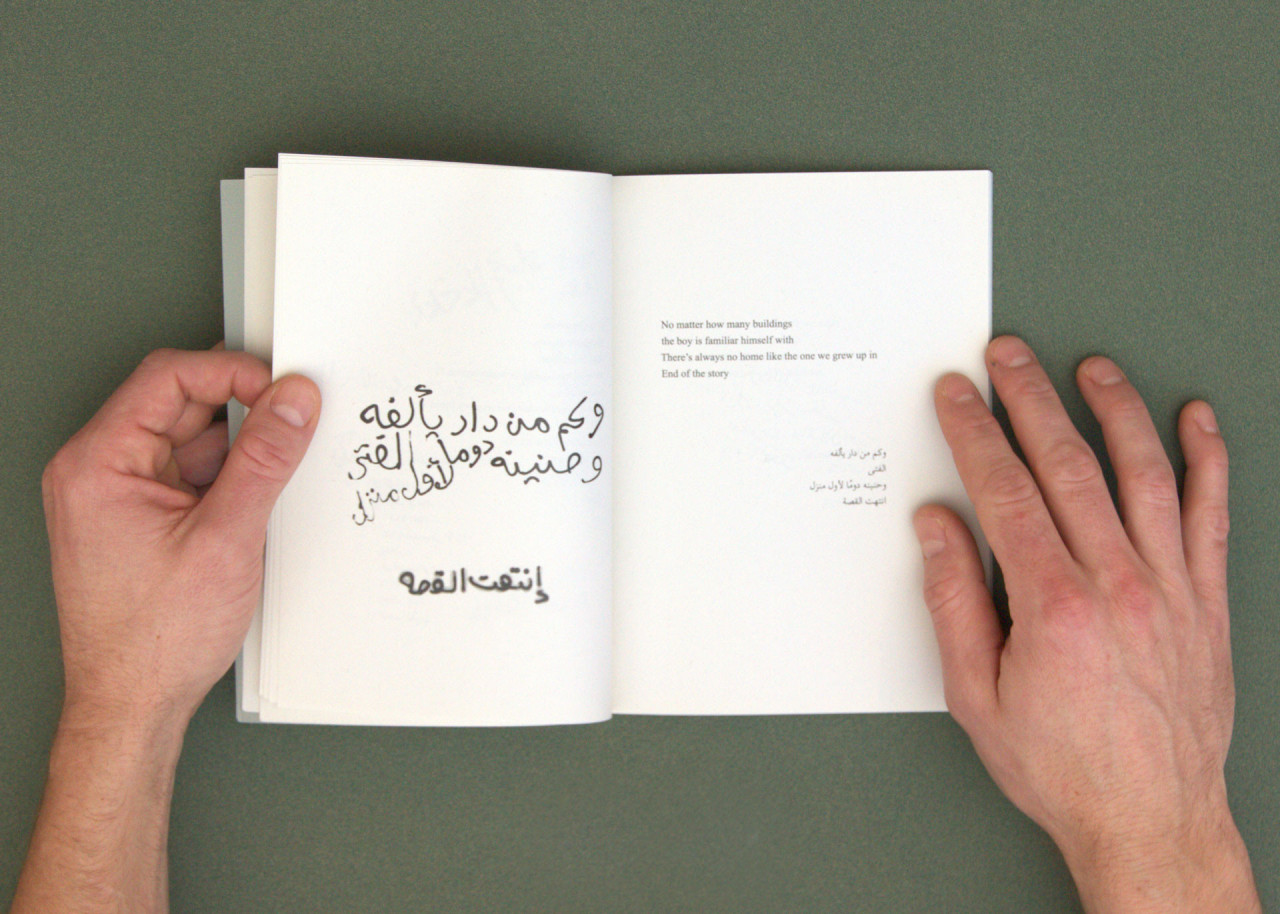 وكم من دار يألفه
الفتى
وحنينه دوماً لأول منزل
إنتهت القصه
No matter how many buildings
the boy is familiar himself with
There's always no home like the one we grew up in
End of the story
وكم من دار يألفه
الفتى
وحنينه دومًا لأول منزل
انتهت القصة